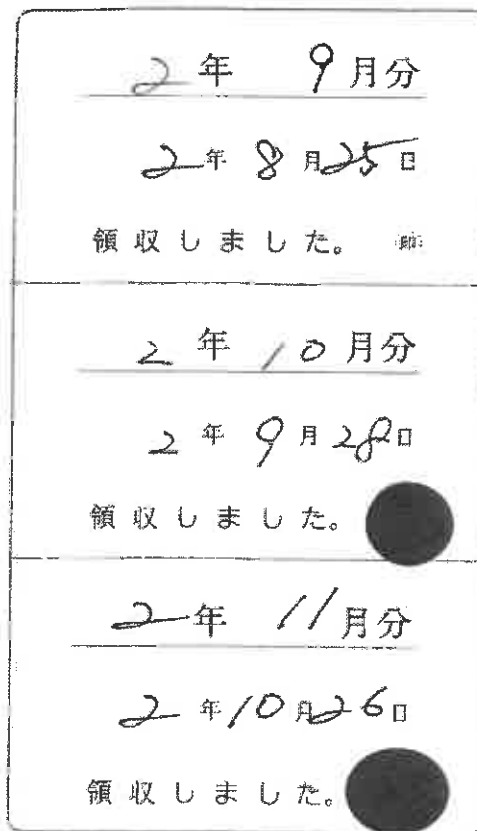 2年 9月分
2年 8月25日
領収しました。
2年 10月分
2年 9月28日
領収しました。
2年 11月分
2年10月26日
領収しました。